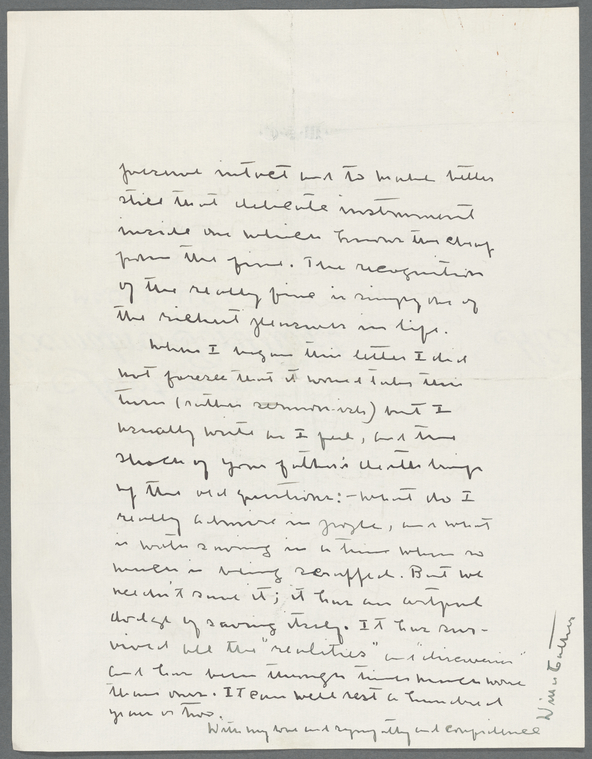 preserve intact and to make better
still that delicate instrument
inside one which knows the cheap
from the fine. The recognition
of the really fine is simply one of
the richest pleasures in life.
When I began this letter I did
not foresee that it would take this
turn (rather sermon-ish) but I
usually write as I feel, and the
shock of your father's death brings
up the old questions:—what do I
really admire in people, and what
is worth saving in a time when so
much is being scrapped. But we
needn't save it; it has an artful
dodge of saving itself. It has sur-
vived all the "realities" and "discoveries"
and has been through times much worse
than ours. It can well rest a hundred
years or two.
With my love and sympathy and confidence
Willa Cather